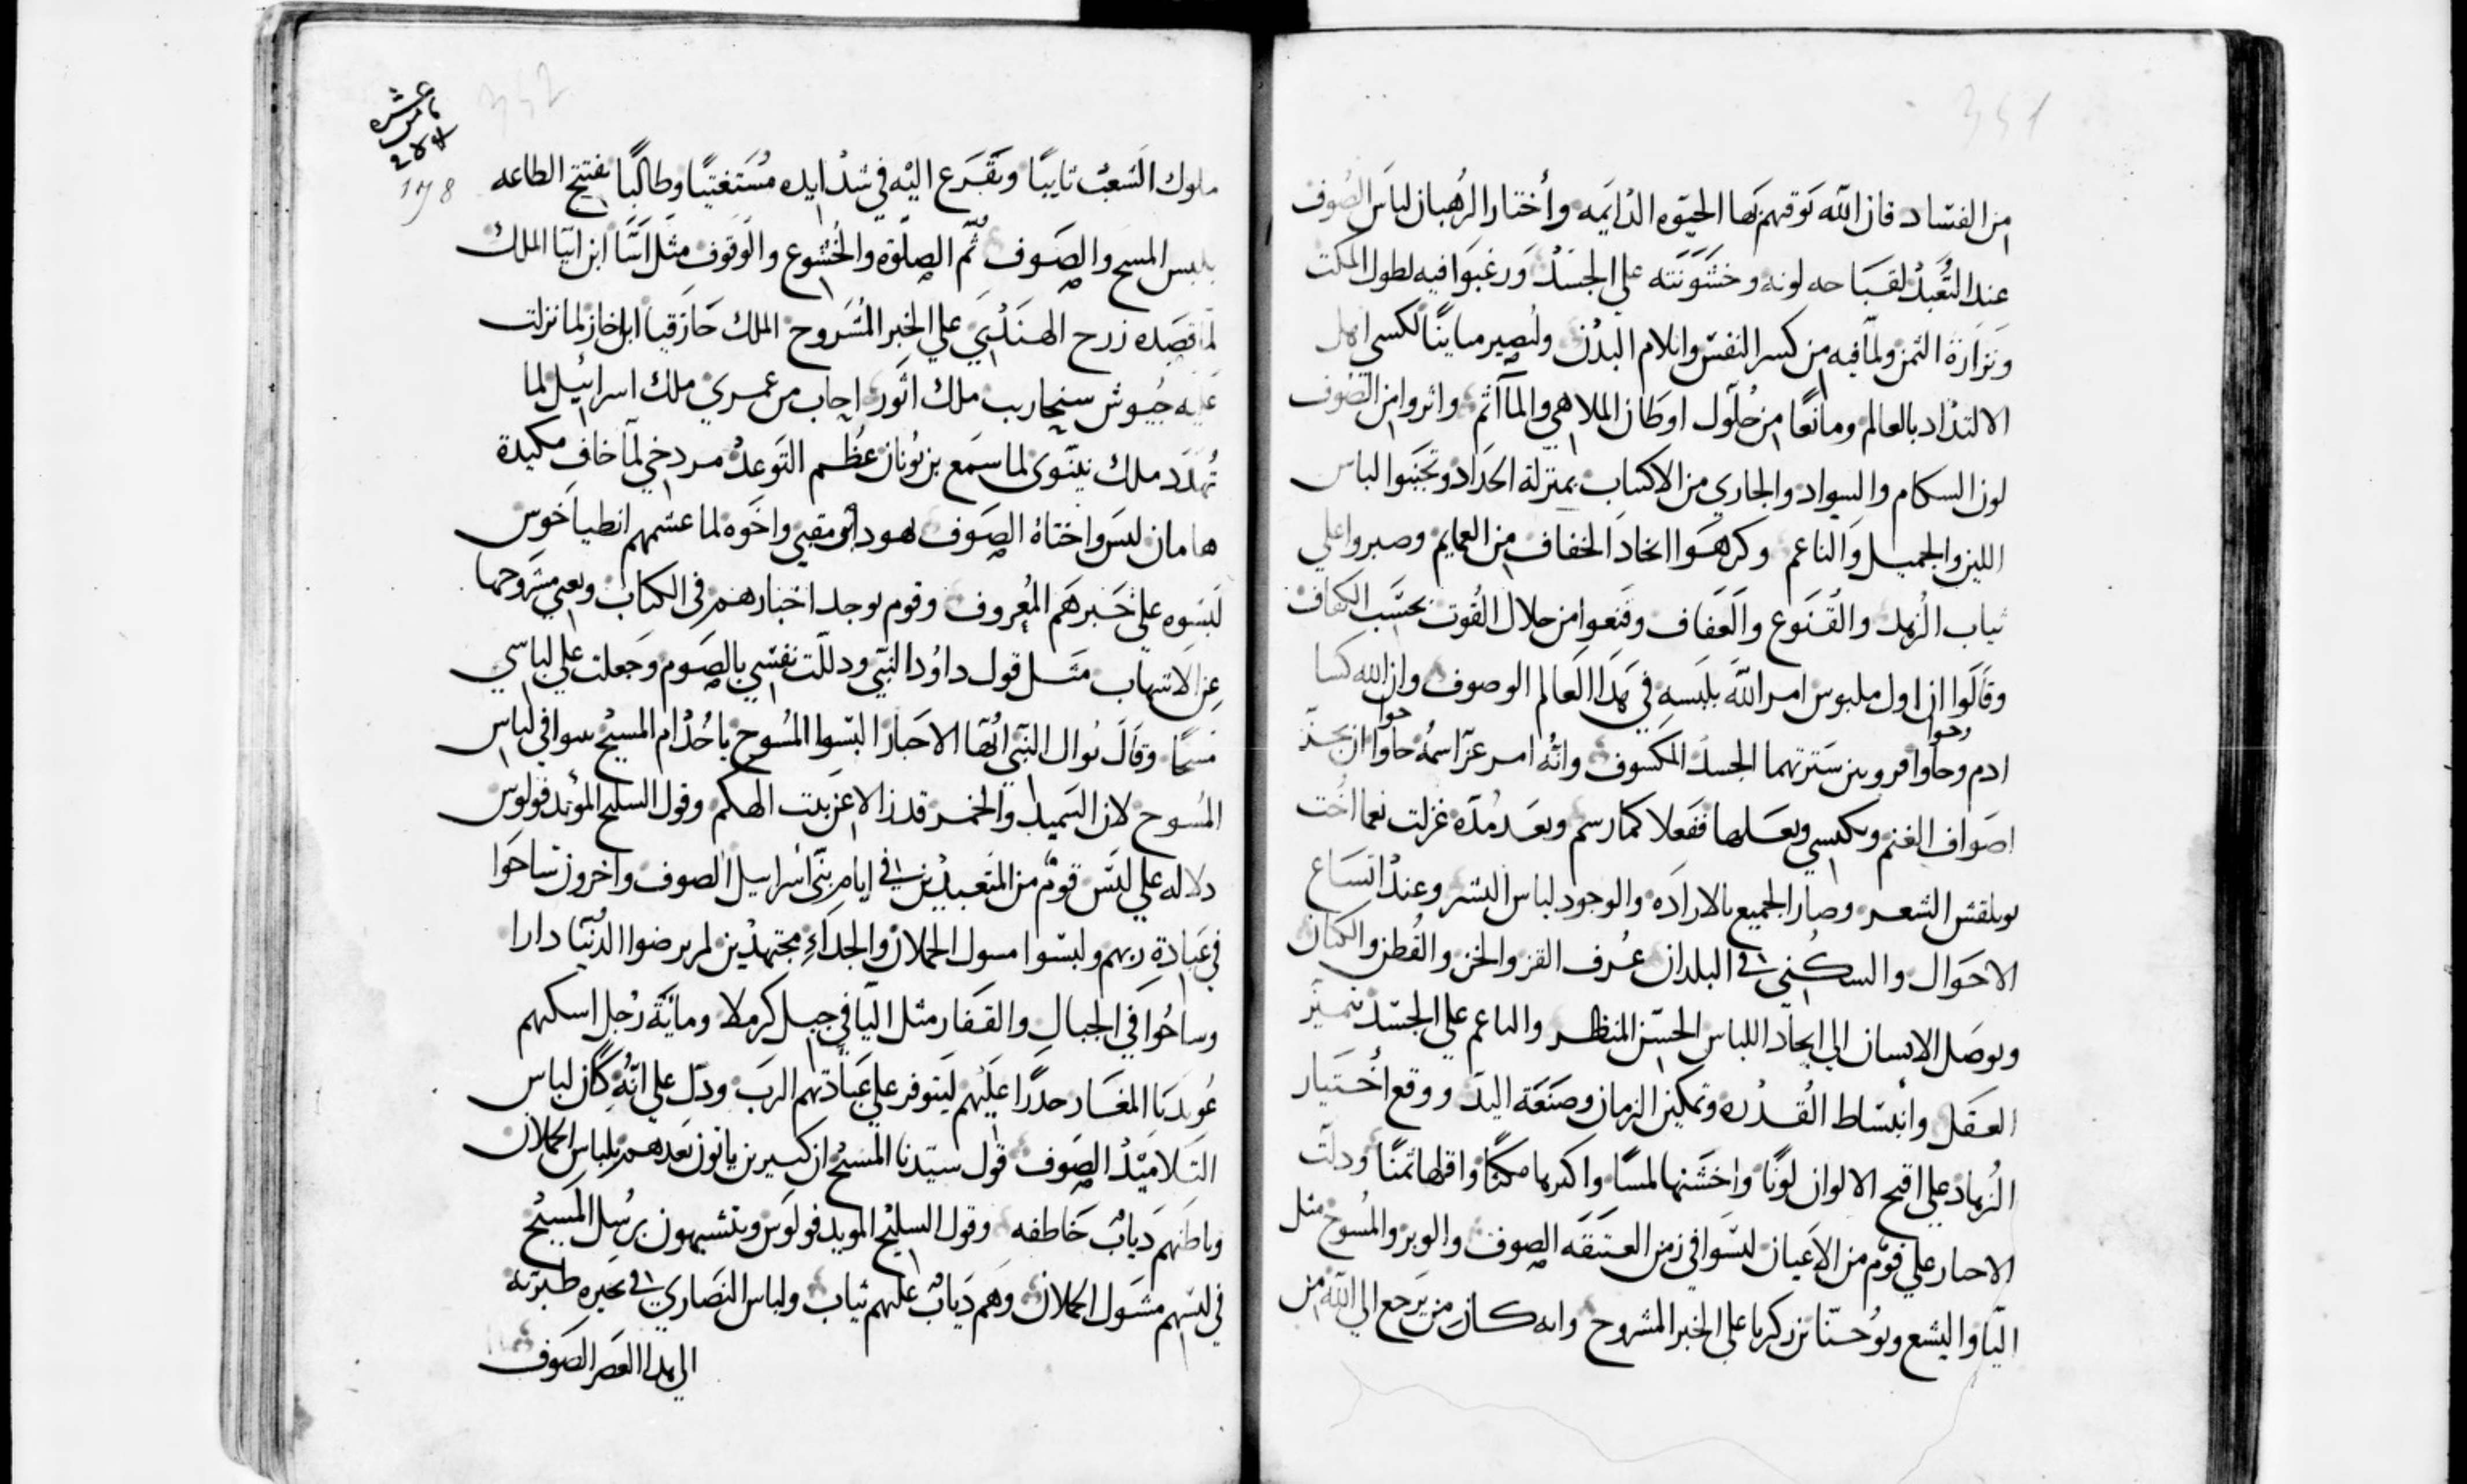 351
من الفساد فان الله توقهم بها الحيوه الدايمه واختار الرهبان لباس الصوف
عند التعبد لقباحه لونه وخشونته علي الجسد ورغبوا فيه لطول المكث
ونزارة الثمن ولما فيه من كسر النفس وايلام البدن وليصير مباينًا لكسي اهل
الالتداد بالعالم ومانعًا من حلول اوطان الملاهي والمآثم واثروا من الصوف
لون السكام والسواد والجاري من الاكتياب بمنزله الحداد وتجنبوا الباس
اللين والجميل والناعم وكرهوا اتخاد الخفاف من العمايم وصبروا علي
ثياب الزهد والقنوع والعفاف وقنعوا من حلال القوت بحسب الكفاف
وقالوا ان اول ملبوس امر الله بلبسه في هدا العالم الوصوف وان الله كسا
ادم وحاوا فروين سترتهما الجسد المكسوف وانه امر عز اسمه حاوا ان تجز
وحوا حوا
اصواف الغنم وتكتسي وبعلها ففعلا كما رسم وبعد مده غزلت نعما اخت
توبلقين الشعر وصار الجميع بالاراده والوجود لباس البشر وعند اتساع
الاحوال والسكني في البلدان عرف القز والخز والقطن والكتان
وتوصل الانسان الي ايجاد اللباس الحسن المنظر والناعم علي الجسد بتمييز
العقل وانبساط القدره وتمكين الزمان وصنعة اليد ووقع اختيار
الزهاد علي اقبح الالوان لونًا واخشنها لمسًا واكثرها مكثًا واقلها ثمنًا ودلت
الاخبار علي قوم من الاعيان لبسوا في زمن العتيقه الصوف والوبر والمسوح مثل
اليا واليشع ويوحنا بن زكريا علي الخبر المشروح وانه كان من يرجع الي الله من
342
خامس عشره
178
ملوك الشعب تايبًا ويتقرع اليه في شدايده مستغيثًا وطالبًا يفتتح الطاعه
بلبس المسح والصوف ثم الصلوة والخشوع والوقوف مثل اسا ابن ابيا الملك
لما قصده زرح الهندي علي الخبر المشروح الملك حازقيا ابن اخاز لما نزلت
عليه جيوش سنحاريب ملك اثور اجاب من عمري ملك اسرائيل لما
تهدد ملك نينوي لما سمع بن يونان عظم التوعد مردخي لما خاف مكيدة
هامان لبس واختاه الصوف يهودا مقبي واخوه لما غشمهم انطياخوس
لبسوه علي خبرهم المعروف وقوم يوجد اخبارهم في الكتاب ويغني مشروحها
عن الاسهاب مثل قول داود النبي ودللت نفسي بالصوم وجعلت علي لباسي
مسحًا وقال يوال النبي ايها الاحبار البسوا المسوح يا خدام المسيح بيتوا في لباس
المسوح لان السميد والخمر قد زالا عن بيت الهكم وقول السليح المؤيد فولوس
دلاله علي لبس قوم من المتعبدين في ايام بني اسراييل الصوف واخرون ساحوا
في عبادة ربهم ولبسوا مسوك الحملان والجداء مجتهدين لم يرضوا الدنيا دارا
وساحوا في الجبال والقفار مثل اليا في جبل كرملا ومائة رجل اسكنهم
عوبديا المغار حدرًا عليهم ليتوفر علي عبادتهم الرب ودل علي انه كان لباس
التلاميد الصوف قول سيدنا المسيح ان كسيرين ياتون بعدهم بلباس الحملان
وباطنهم دياب خاطفه وقول السليح المويد فولوس ويتشبهون برسل المسيح
في لبسهم مسوك الحملان وهم دياب عليهم ثياب ولباس النصاري في بحيره طبريه
الي هدا العصر الصوف